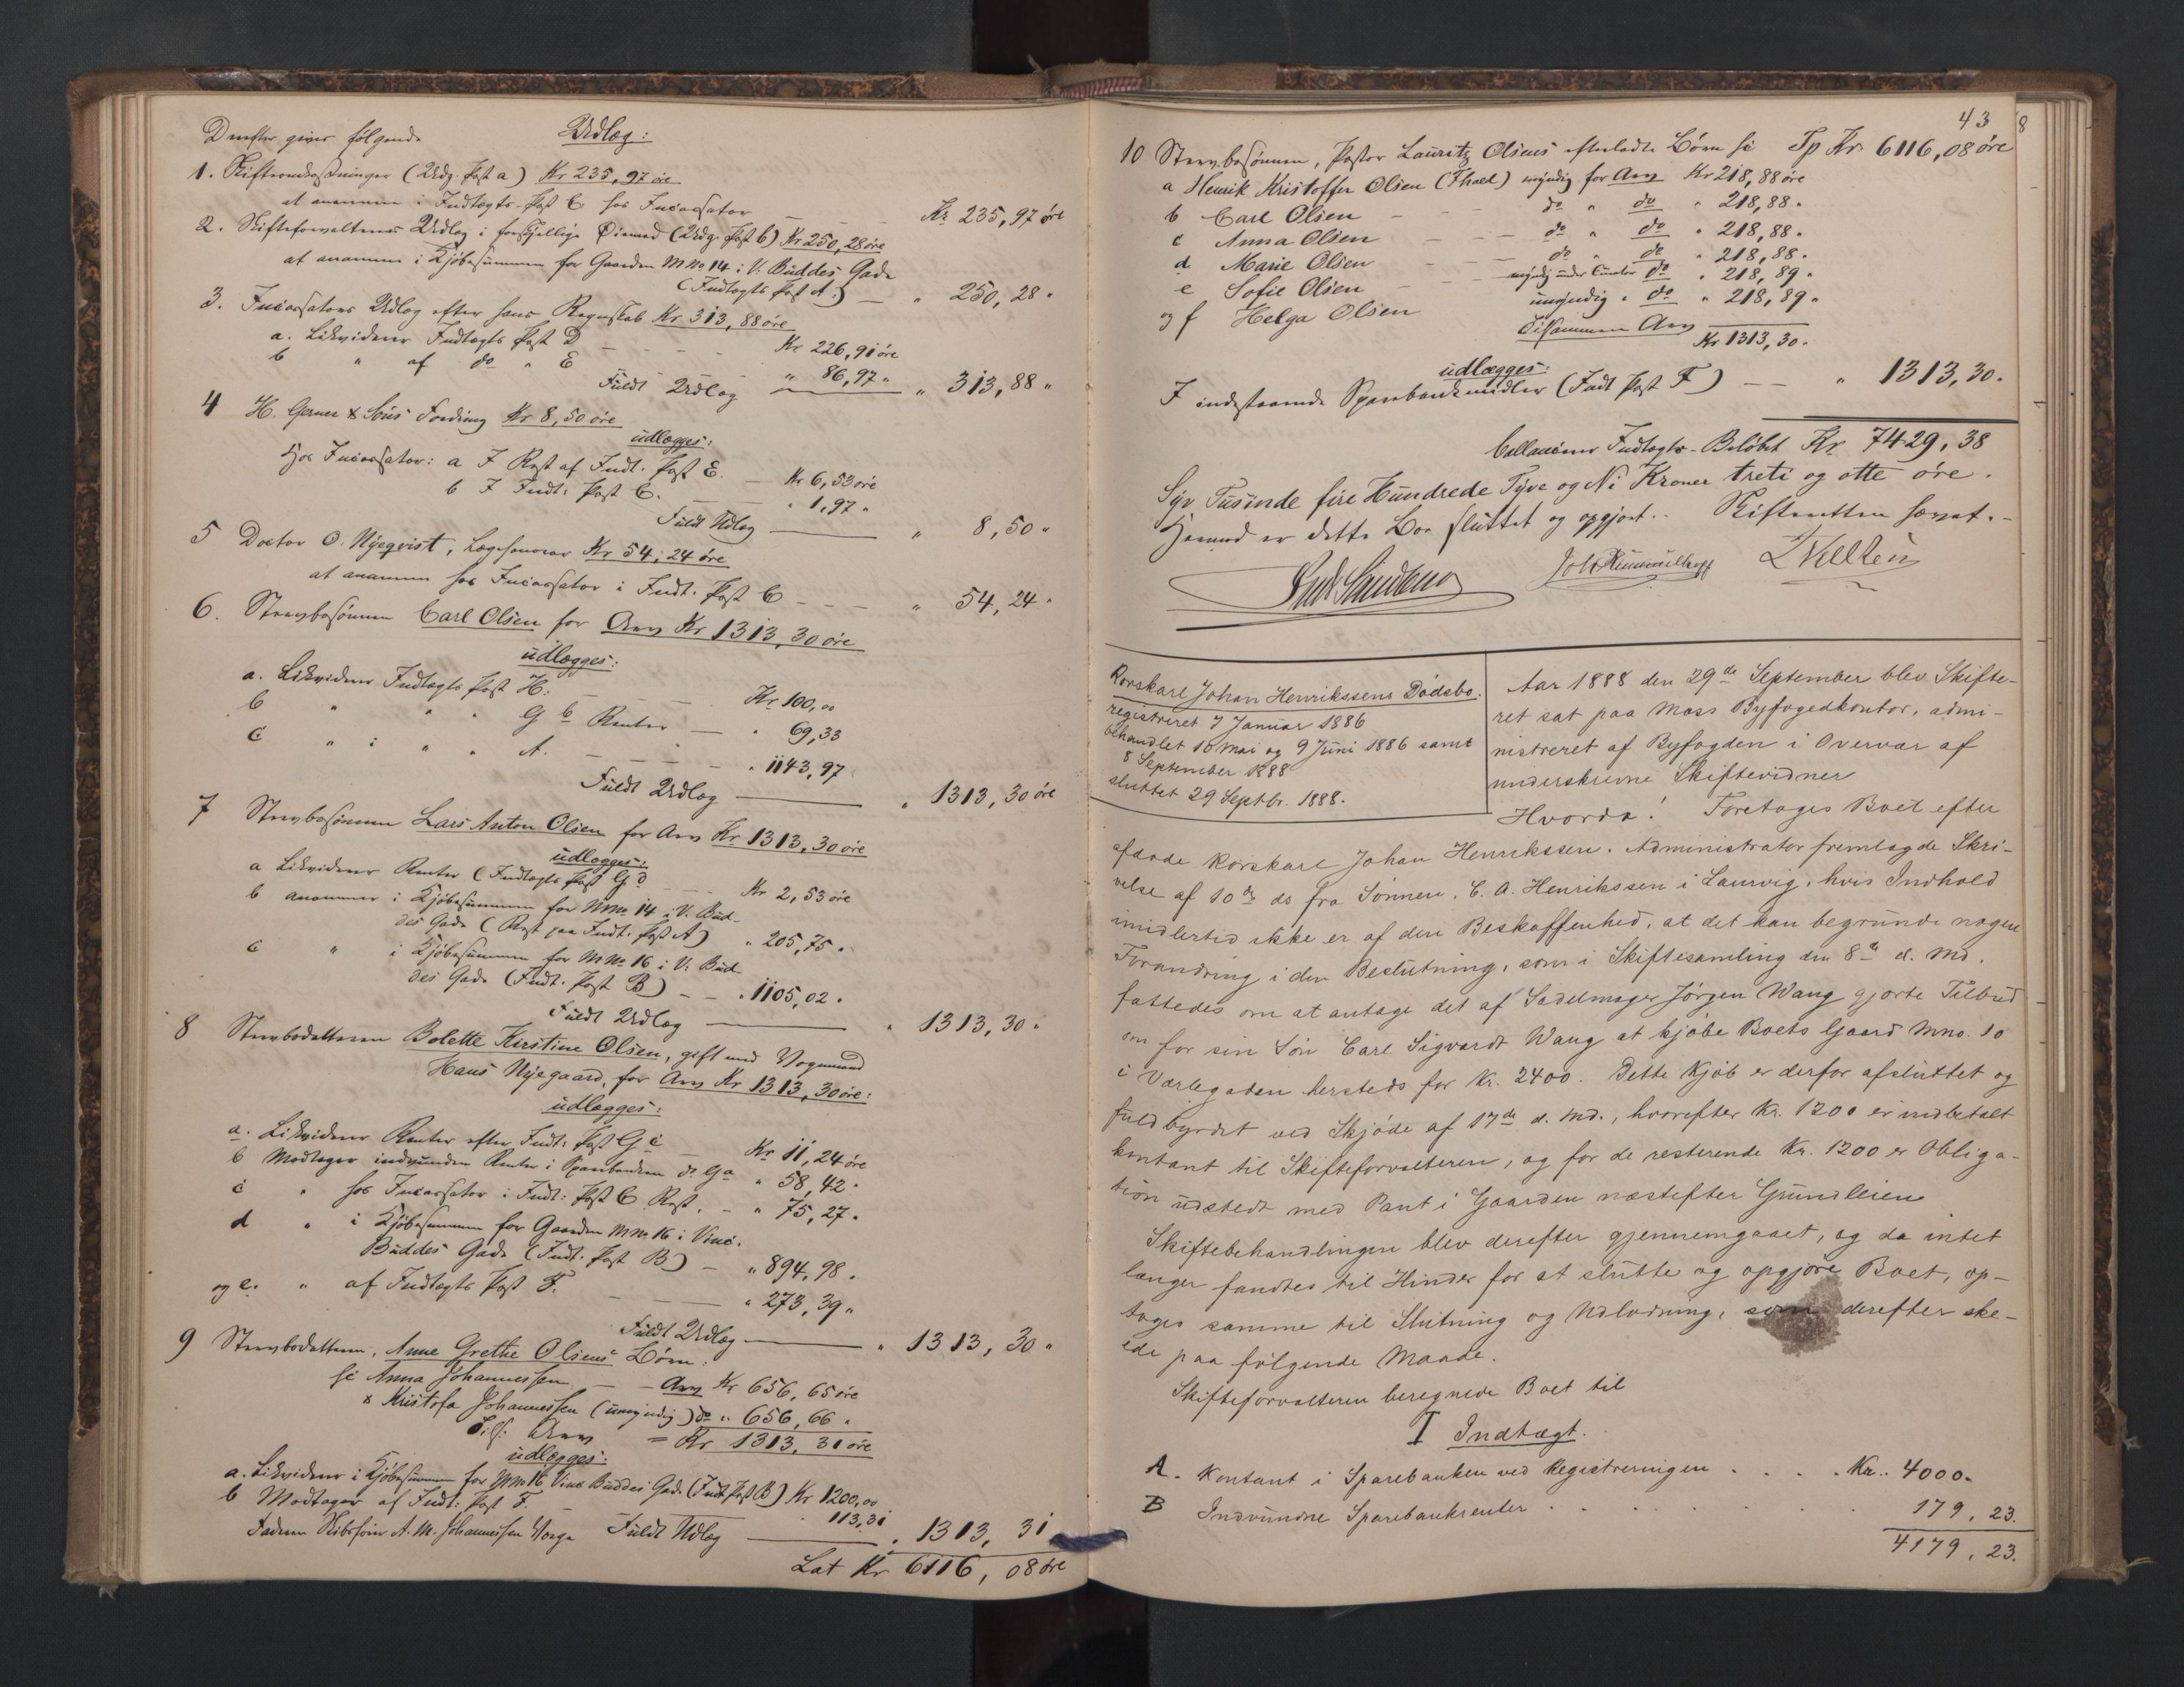 Derefter gives følgende Udlæg:
1. Skifteomkostninger (Udg. Post a) Kr 235,97 øre
at annamme i Indtægts-Post C hos Incassator — Kr. 235,97 øre
2. Skifteforvalterens Udlæg i forskjellige Øiemed (Udg. Post b) Kr 250,28 øre
at annamme i Kjøbesummen for Gaarden M No 14 i V. Buddes Gade
(Indtægts Post A.) — " 250,28 "
3. Incassators Udlæg efter hans Regnskab Kr 313,88 øre
a. Likviderer Indtægts Post D — Kr 226,91 øre
b " af do " E " 86,97 "
Fuldt Udlæg — " 313,88 "
4 H. Gerner & Søns Fordring Kr 8,50 øre
udlægges:
Hos Incassator: a I Rest af Indt. Post E. — Kr 6,53 øre
b I Indt: Post C. — " 1,97 "
Fuldt Udlæg — " 8,50 "
5 Doctor O. Nyeqvist, Lægehonorar Kr 54,24 øre
at annamme hos Incassator i Indt. Post C — " 54,24 "
6. Stervbosønnen Carl Olsen for Arv Kr 1313,30 øre
udlægges:
a. Likviderer Indtægts Post H: Kr 100,00
b " " " G b Renter — " 69,33
c " i " " A. — " 1143,97
Fuldt Udlæg — " 1313,30 øre
7 Stervbosønnen Lars Anton Olsen for Arv Kr. 1313,30 øre
udlægges:
a Likviderer Renter (Indtægts Post G d — Kr 2,53 øre
b annammer i Kjøbesummen for M No 14 i V. Bud-
des Gade (Rest paa Indt. Post A) " 205,75 "
c " i Kjøbesummen for M No 16 i V. Bud-
des Gade (Indt. Post B) — " 1105,02 "
Fuldt Udlæg — " 1313,30 "
8 Stervbodatteren Bolette Kirstine Olsen, gift med Vognmand
Hans Nyegaard, for Arv Kr 1313,30 øre:
udlægges:
a. Likviderer Renter efter Indt: Post G c — Kr 11,24 øre
b Modtager indvunden Renter i Sparebanken do G a " 58,42 "
c " hos Incassator i Indt: Post C Rest. — " 75,27 "
d " i Kjøbesummen for Gaarden M No 16 i Vinc.
Buddes Gade (Indt. Post B) — " 894,98 "
og e. " af Indtægts Post F. — " 273,39 "
Fuldt Udlæg — " 1313,30 "
9 Stervbodatteren, Anne Grethe Olsens Børn:
Anna Johannessen — Arv Kr 656,65 øre
& Kristofa Johannessen (umyndig) do " 656,66 "
Tils: Arv = Kr 1313,31 øre
udlægges:
a. Likviderer i Kjøbesummen for M No 16 Vinc Buddes Gade (Indt. Post B) Kr 1200,00
b Modtager af Indt: Post F. — " 113,31
Faderen A. M. Johannessen Værge Fuldt Udlæg — " 1313,31
Lat Kr 6116,08 øre
43
8
10 Stervbosønnen, Pastor Lauritz Olsens efterladte Børn Tp Kr 6116,08 øre
a Henrik Kristoffer Olsen (Thad) myndig for Arv Kr 218,88 øre
b Carl Olsen — do " do " 218,88 "
c Anna Olsen — do " do " 218,88 "
d Marie Olsen — do " do " 218,88 "
e Sofie Olsen — myndig under Curator do " 218,89 "
og f Helga Olsen umyndig " do " 218,89 "
Tilsammen Arv Kr 1313,30 "
udlægges:
I indestaaende Sparebankmidler (Indt Post F) — " 1313,30 "
Ballancerer Indtægts-Beløbet Kr 7429,38
Syv Tusinde fire Hundrede Tyve og Ni Kroner treti og otte øre.
Hermed er dette Bo sluttet og opgjort. Skifteretten hævet.
Rorskarl Johan Henrikssens Dødsbo.
registreret 7 Januar 1886
behandlet 10 Mai og 9 Juni 1886 samt
8 September 1888
sluttet 29 Septbr. 1888.
Aar 1888 den 29de September blev Skifte-
ret sat paa Moss Byfogedkontor, admi-
nistreret af Byfogden i Overvær af
underskrevne Skiftevidner
Hvorda! Foretages Boet efter
afdøde Rorskarl Johan Henrikssen. Administrator fremlagde Skri-
velse af 10de ds fra Sønnen, C. A. Henrikssen i Laurvig, hvis Indhold
imidlertid ikke er af den Beskaffenhed, at det kan begrunde nogen
Forandring i den Beslutning, som i Skiftesamling den 8de d. Md.
fattedes om at antage det af Sadelmager Jørgen Wang gjorte Tilbud
om for sin Søn Carl Sigvardt Wang at kjøbe Boets Gaard Mno. 10
i Værlegaden hersteds for Kr. 2400. Dette Kjøb er derfor afsluttet og
fuldbyrdet ved Skjøde af 17de d. Md., hvorefter Kr. 1200 er indbetalt
kontant til Skifteforvalteren, og for de resterende Kr. 1200 er Obliga-
tion udstedt med Pant i Gaarden næstefter Grundleien
Skiftebehandlingen blev derefter gjennemgaaet, og da intet
længer fandtes til Hinder for at slutte og opgjøre Boet, op-
toges samme til Slutning og Udlodning, som derefter ske-
ede paa følgende Maade.
Skifteforvalteren beregnede Boet til
I Indtægt.
A. Kontant i Sparebanken ved Registreringen . . . . Kr. 4000 "
B Indvundne Sparebankrenter . . . . . . 179,23.
4179,23.